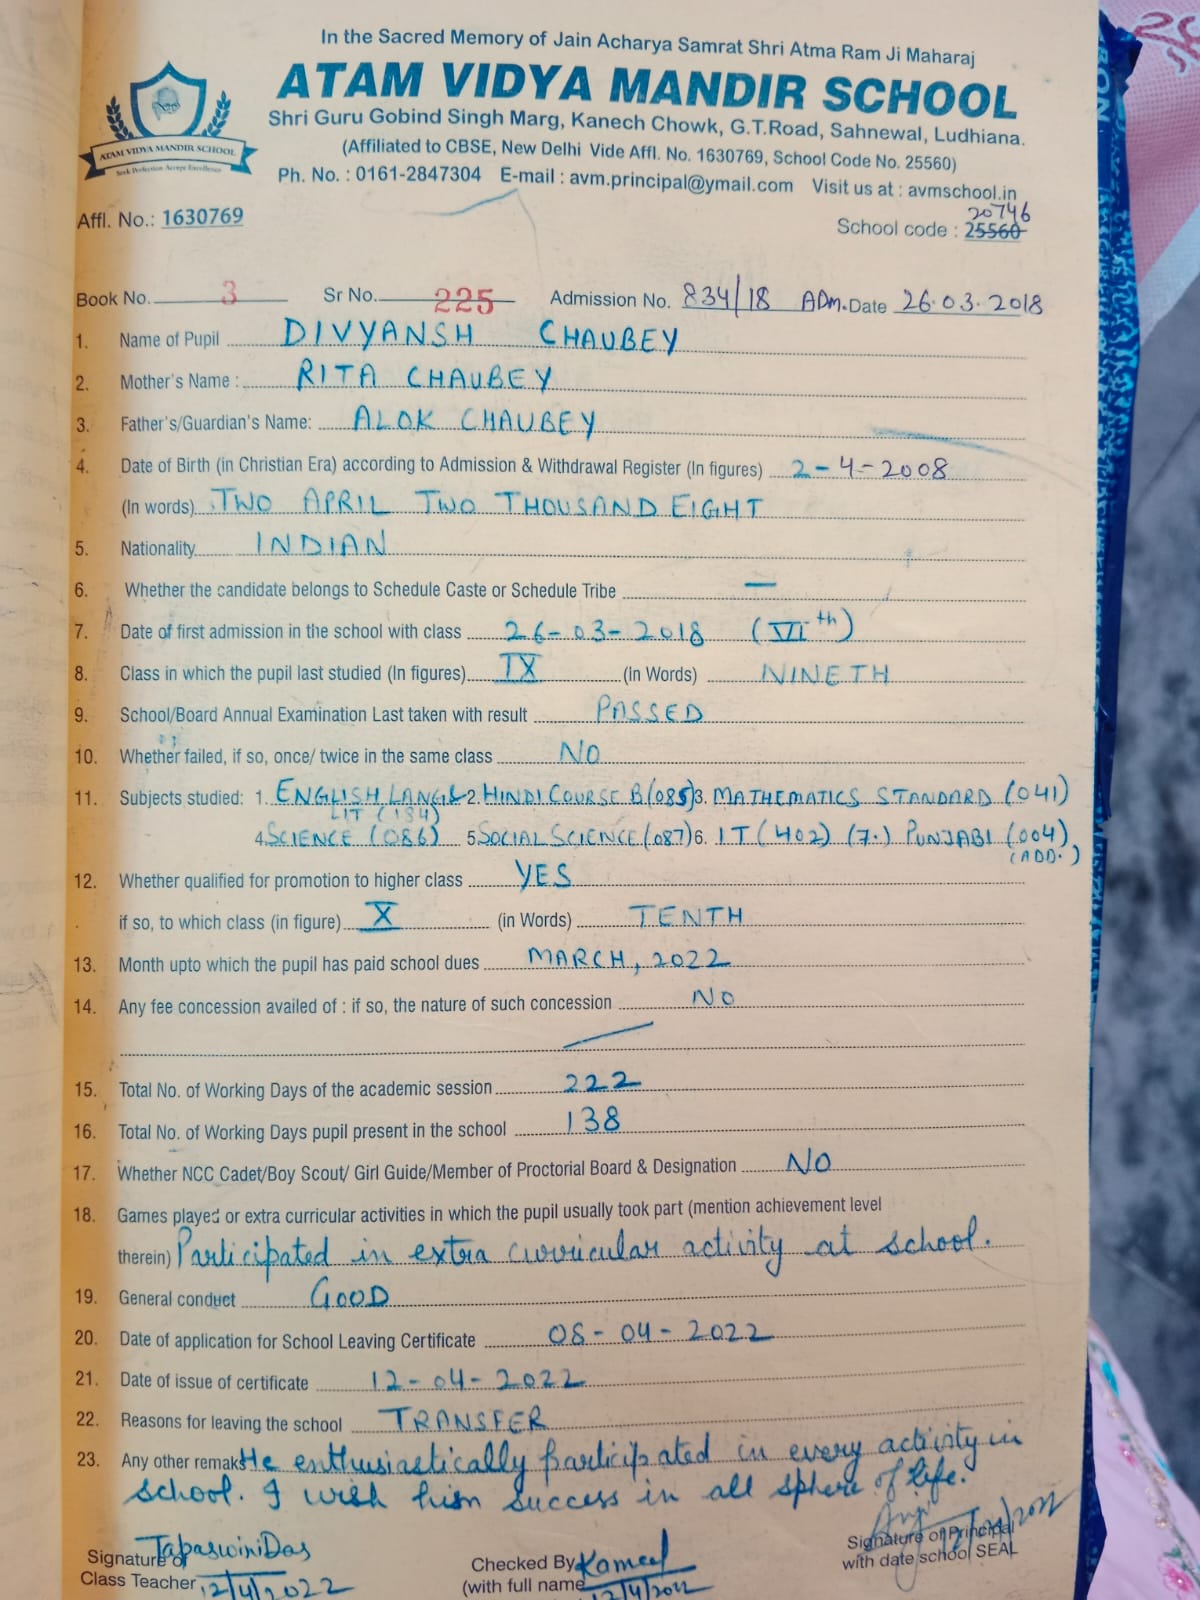 In the Sacred Memory of Jain Acharya Samrat Shri Atma Ram Ji Maharaj
ATAM VIDYA MANDIR SCHOOL
Shri Guru Gobind Singh Marg, Kanech Chowk, G.T.Road, Sahnewal, Ludhiana.
(Affiliated to CBSE, New Delhi Vide Affl. No. 1630769, School Code No. 25560)
Ph. No. : 0161-2847304 E-mail : avm.principal@ymail.com Visit us at : avmschool.in
ATAM VIDYA MANDIR SCHOOL
Seek Perfection Accept Excellence
20746
Affl. No.: 1630769 School code : 25560
Book No. 3 Sr No. 225 Admission No. 834/18 ADM. Date 26.03.2018
1. Name of Pupil DIVYANSH CHAUBEY
2. Mother's Name : RITA CHAUBEY
3. Father's/Guardian's Name: ALOK CHAUBEY
4. Date of Birth (in Christian Era) according to Admission & Withdrawal Register (In figures) 2-4-2008
(In words) TWO APRIL TWO THOUSAND EIGHT
5. Nationality INDIAN
6. Whether the candidate belongs to Schedule Caste or Schedule Tribe —
7. Date of first admission in the school with class 26-03-2018 (VIth)
8. Class in which the pupil last studied (In figures) IX (In Words) NINETH
9. School/Board Annual Examination Last taken with result PASSED
10. Whether failed, if so, once/ twice in the same class NO
11. Subjects studied: 1. ENGLISH LANG & 2. HINDI COURSE B (085) 3. MATHEMATICS STANDARD (041)
LIT (184)
4. SCIENCE (086) 5. SOCIAL SCIENCE (087) 6. IT (402) (7.) PUNJABI (004)
(ADD.)
12. Whether qualified for promotion to higher class YES
if so, to which class (in figure) X (in Words) TENTH
13. Month upto which the pupil has paid school dues MARCH, 2022
14. Any fee concession availed of : if so, the nature of such concession NO
15. Total No. of Working Days of the academic session 222
16. Total No. of Working Days pupil present in the school 138
17. Whether NCC Cadet/Boy Scout/ Girl Guide/Member of Proctorial Board & Designation NO
18. Games played or extra curricular activities in which the pupil usually took part (mention achievement level
therein) Participated in extra curricular activity at school.
19. General conduct GOOD
20. Date of application for School Leaving Certificate 08-04-2022
21. Date of issue of certificate 12-04-2022
22. Reasons for leaving the school TRANSFER
23. Any other remaks He enthusiastically participated in every activity in
school. I wish him success in all sphere of life.
Signature of TapaswiniDas Checked By Kameel Signature of Principal
Class Teacher 12/4/2022 (with full name 12/4/2022 with date school SEAL